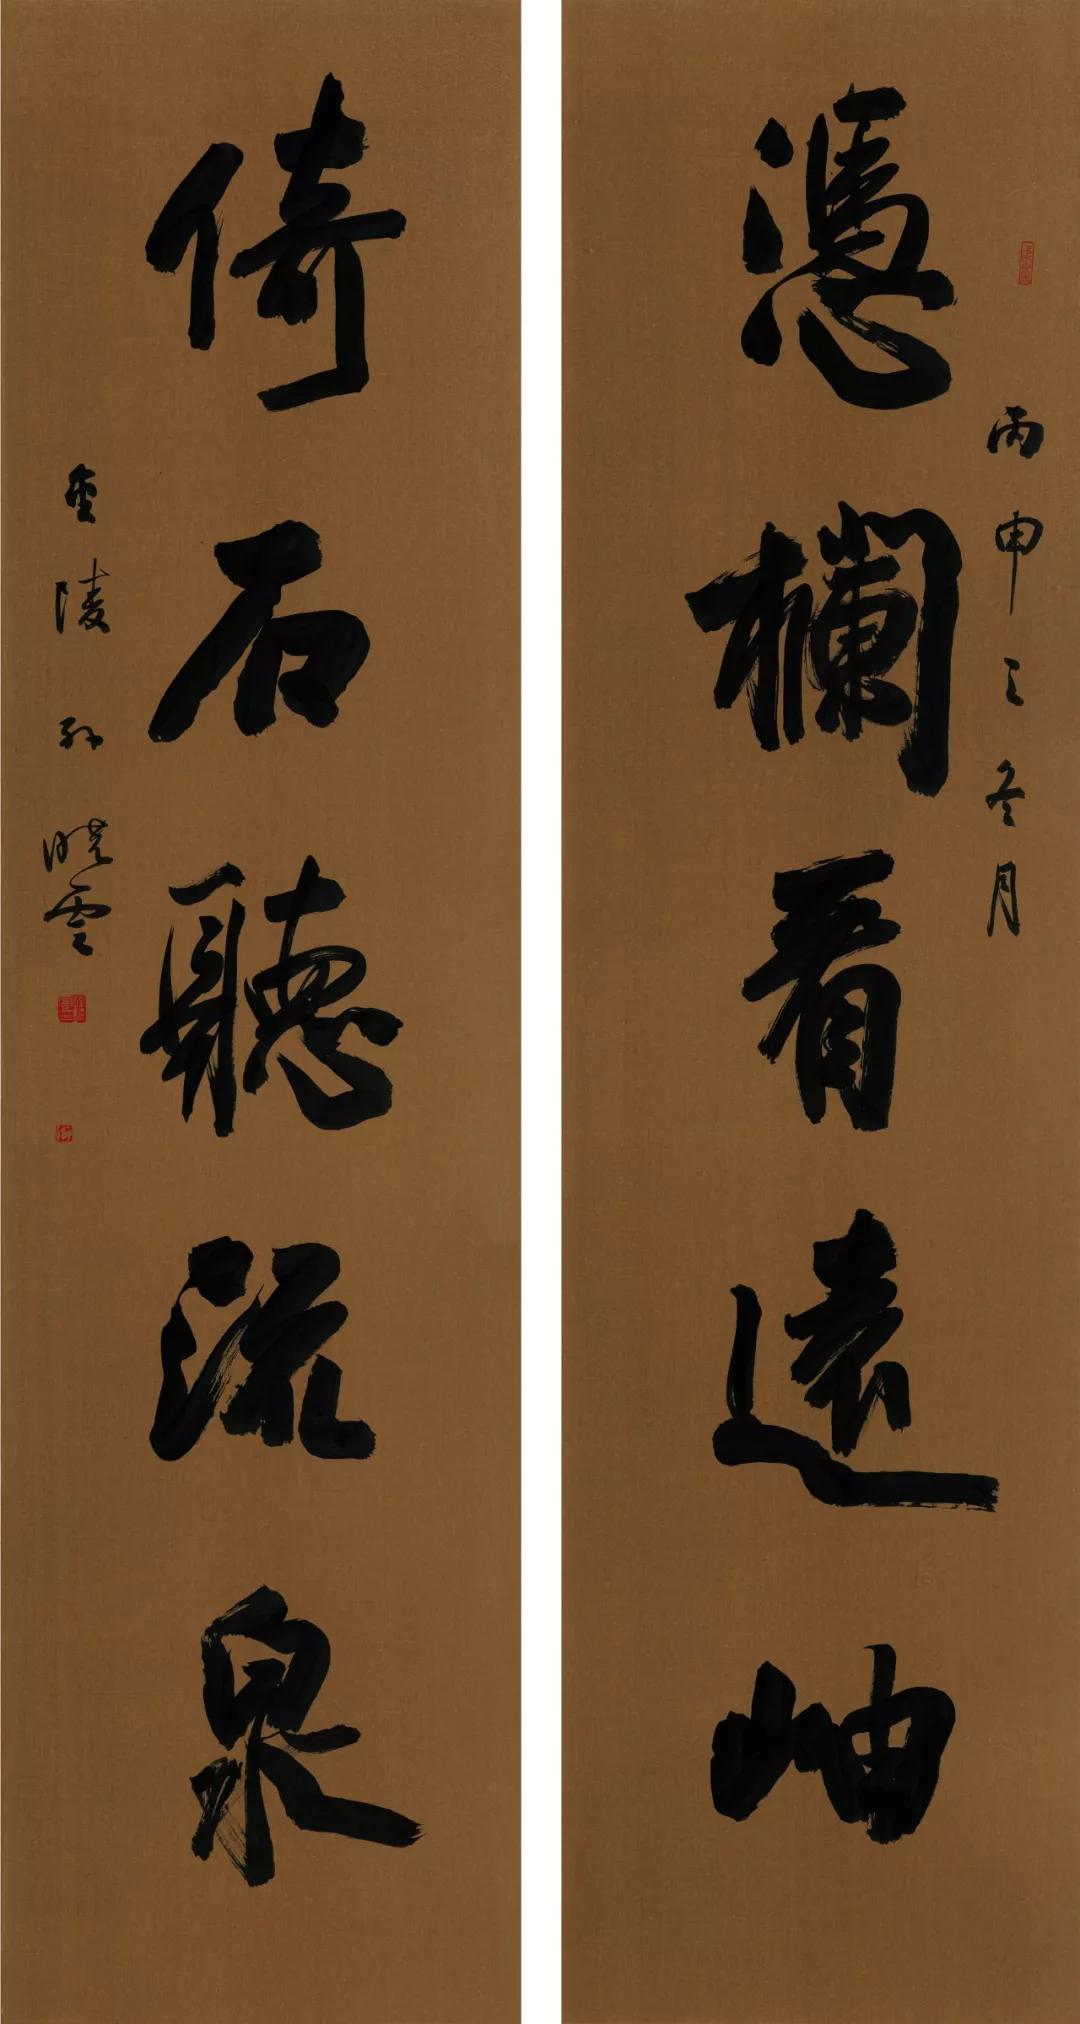 憑欄看遠岫
丙申之冬月
倚石聽流泉
金陵孫曉雲